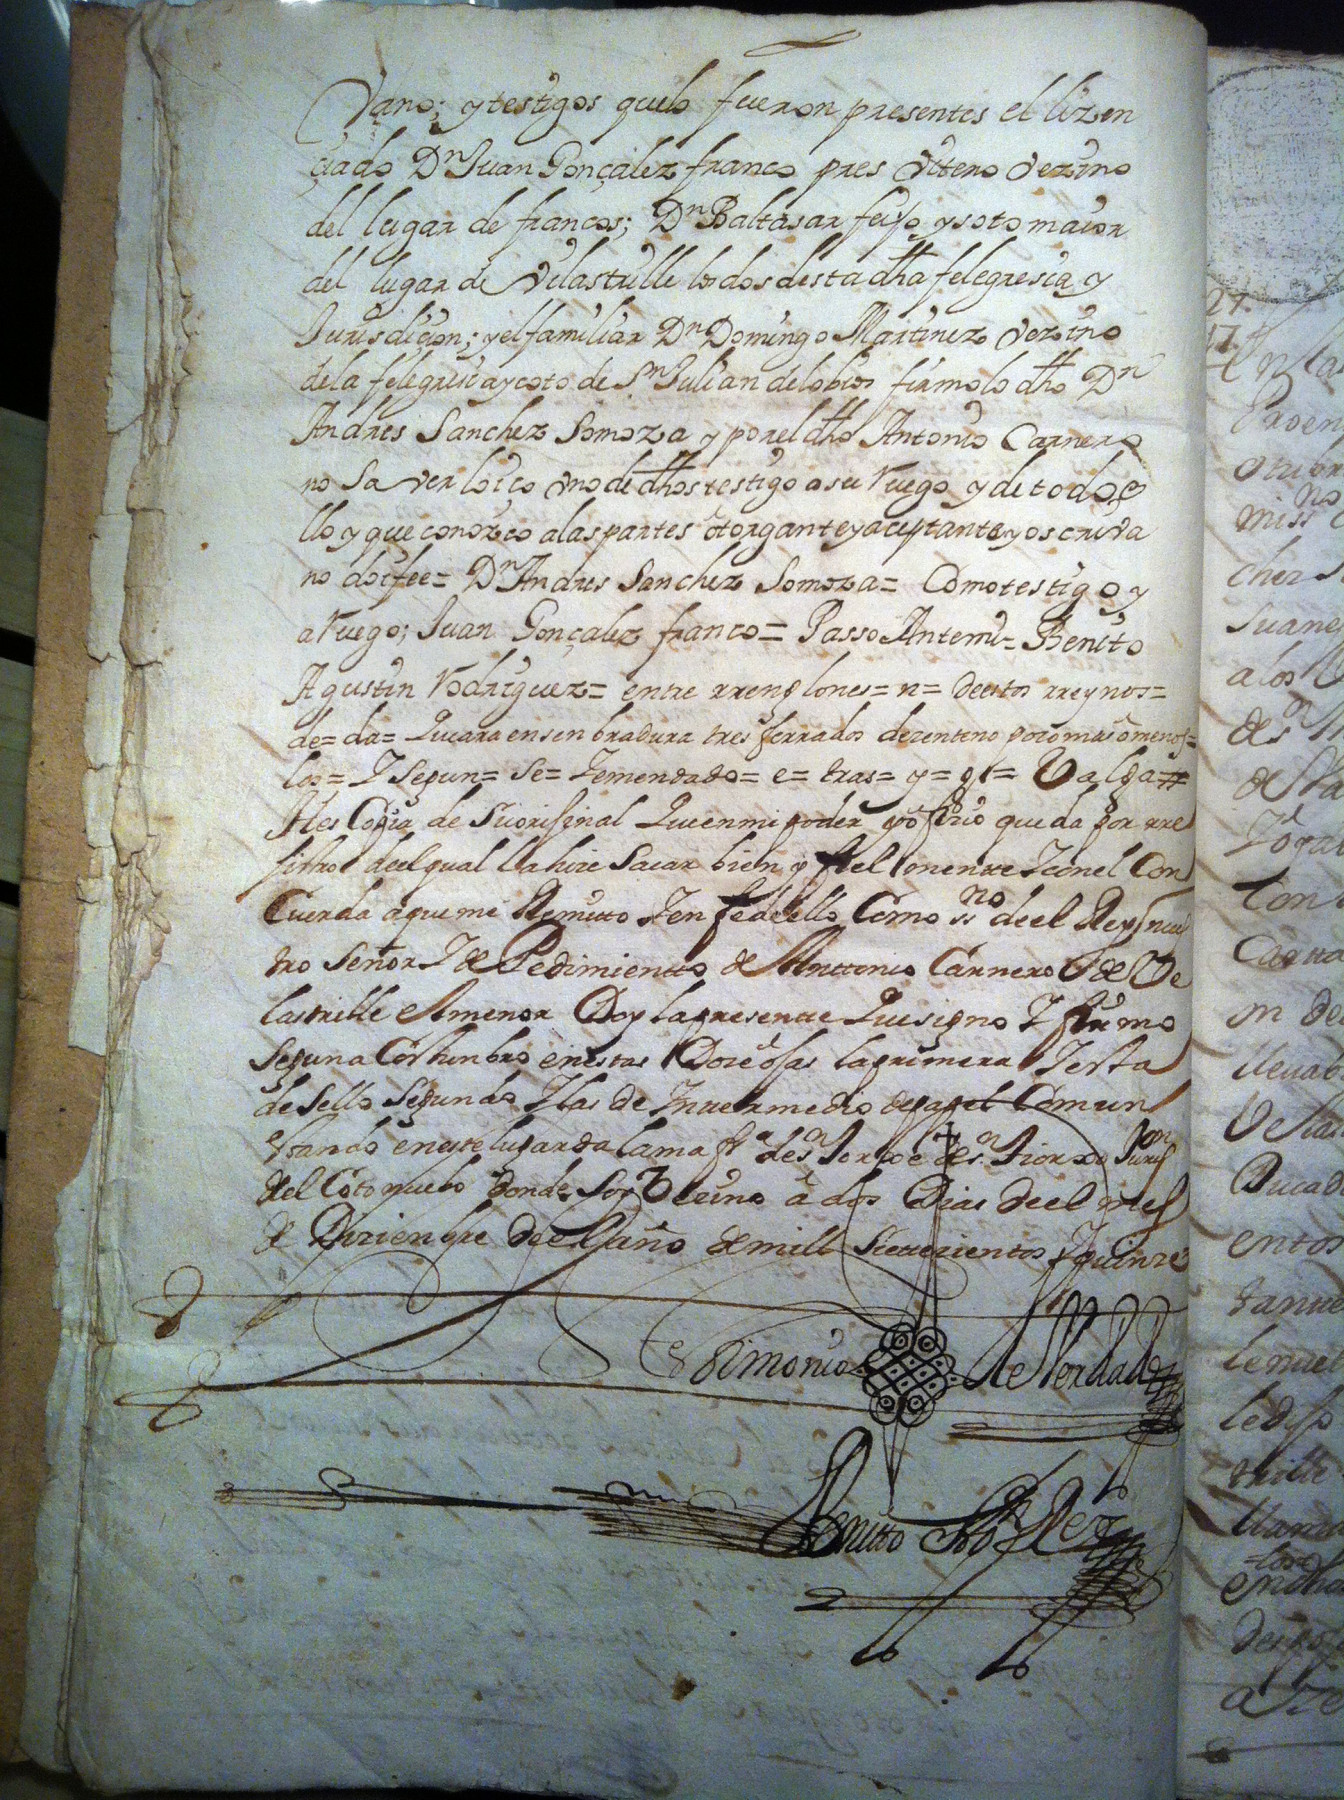 vano; y testigos quelo fueron presentes el lizen
çiado Dn Juan Gonçalez franco pres vitero vezino
del lugar de francos; Dn Baltasar feijo y sotomaior
del lugar de Vilastrille los dos desta dha felegresia y
Jurisdiçion; y el familiar Dn Domingo Martinez vezino
dela felegresia y coto de Sn Julian de lobios firmolo dho Dn
Andres Sanchez Somoza y por el dho Antonio Carnero
no Saver lo iço vno de dhos testigo a su Ruego y de todo e
llo y que conozco alas partes otorgante y aceptante yo scriva
no doi fee= Dn Andres Sanchez Somoza= Como testigo y
a Ruego; Juan Gonçalez franco= Passo Antemi= Benito
Agustin Rodriguez= entre rrenglones= n= deestos rreynos=
de= da= Llevara en senbradura tres ferrados dezenteno poco mas o menos=
los= Y Segun= se= Yemendado= e= tras= y= ql= Valga=
Hes Copia de Su orijinal Que en mi poder y ofizio queda por rre
jistro deel qual lla hize Sacar bien y fiel mente Y con el Con
Cuerda a que me Remitto Y en fee dello Como ssno de el Rey nues
tro Señor Y de Pedimientto de Anttonio Carnero Vo de Ve
lastrille el menor Doy la presente Que signo Y firmo
Segun a Costunbre en estas Doze ojas la primera Y esta
de Sello Segundo Y las de Yntermedio de papel Comun
estando en este lugar da lama fa de Sn Jorxe Juron
del Coto nuebo donde Soy Vezino a dos Dias de el mes
de Diziembre de el año de mill Settezientos Y quinze
Testimonio de Verdad
Benitto